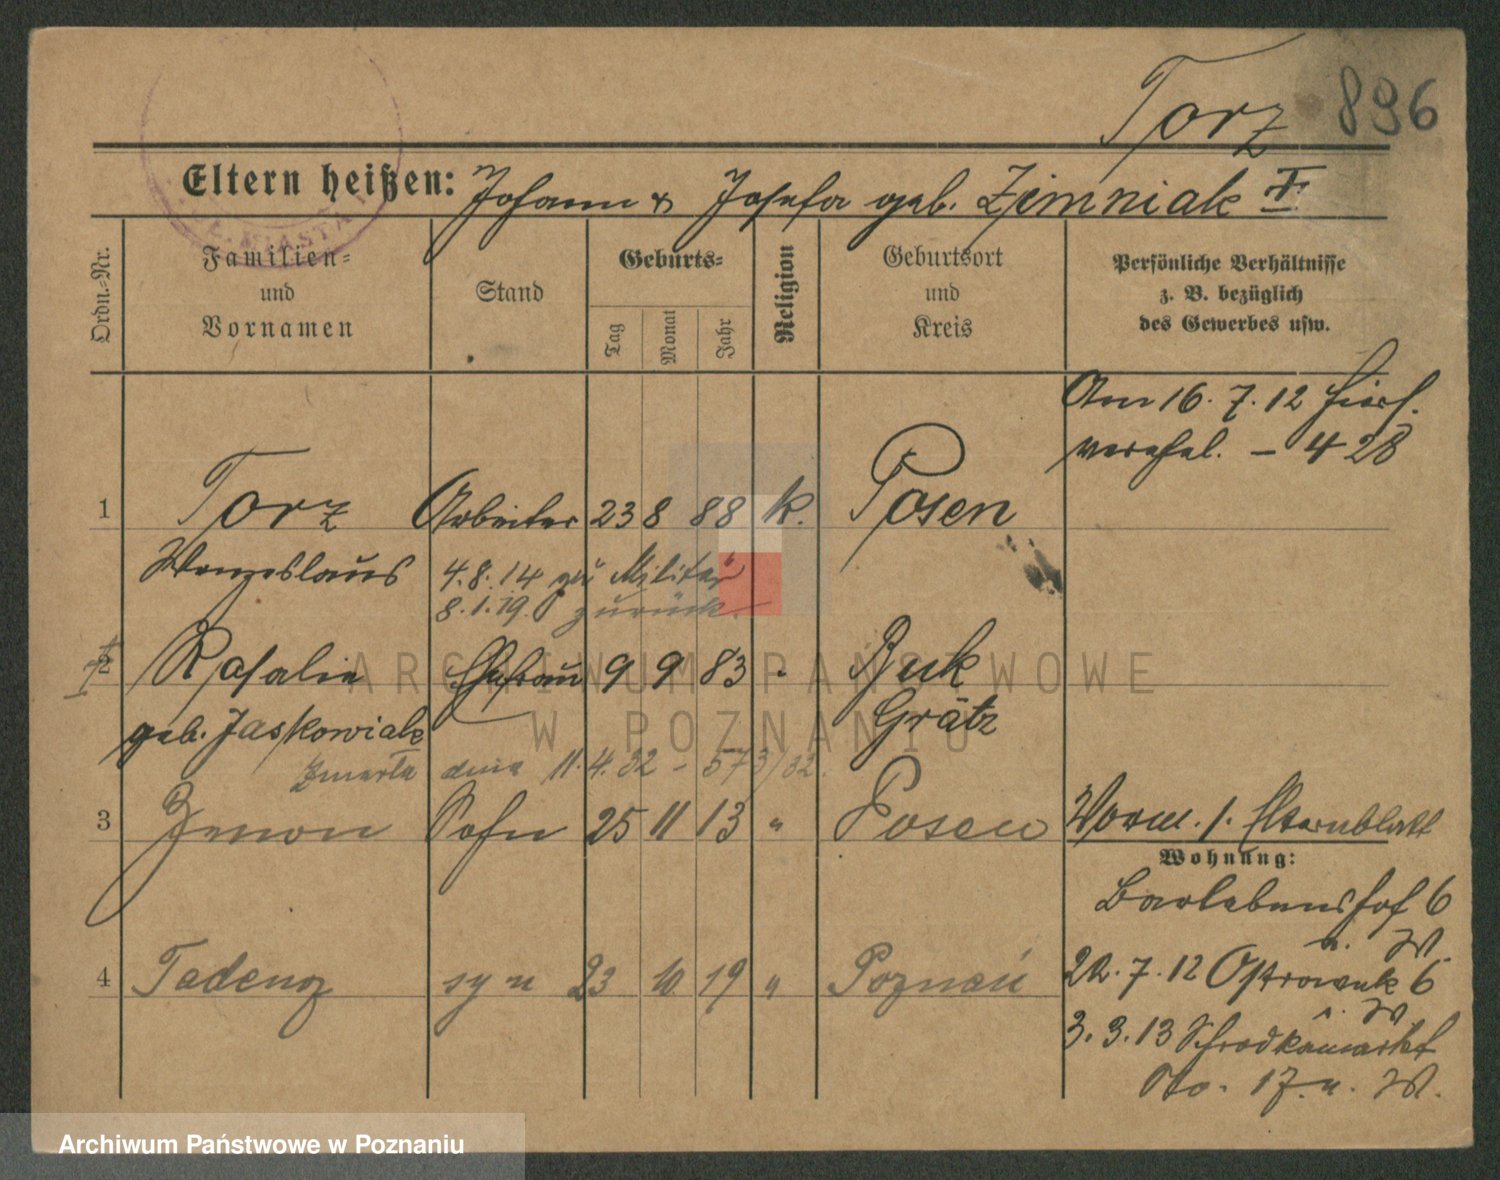 Torz 896
Eltern heißen: Johann & Josefa geb. Zimniak
Ordn.-Nr.
Familien-
und
Vornamen
Stand
Geburts-
Tag
Monat
Jahr
Religion
Geburtsort
und
Kreis
Persönliche Verhältnisse
z. B. bezüglich
des Gewerbes usw.
Am 16.7.12 hies.
verehel. – 428
1 Torz Arbeiter 23 8 88 k. Posen
Wenzeslaus 4.8.14 zu Militär
8.1.19. zurück.
2 Rosalie Ehefrau 9 9 83 " Buk
geb. Jaskowiak Grätz
Zmarła dnia 11.4.32 – 573/32.
3 Zenon Sohn 25 11 13 " Posen
Vorm. 1. Elternblatt
Wohnung:
Bartebenshof 6
n. W.
4 Tadeusz syn 23 10 19 " Poznań
22.7.12 Ostrowek 6
n. W.
3.3.13 Schrodkamarkt
No. 17. n. W.
MIASTA
ARCHIWUM PAŃSTWOWE
W POZNANIU
Archiwum Państwowe w Poznaniu